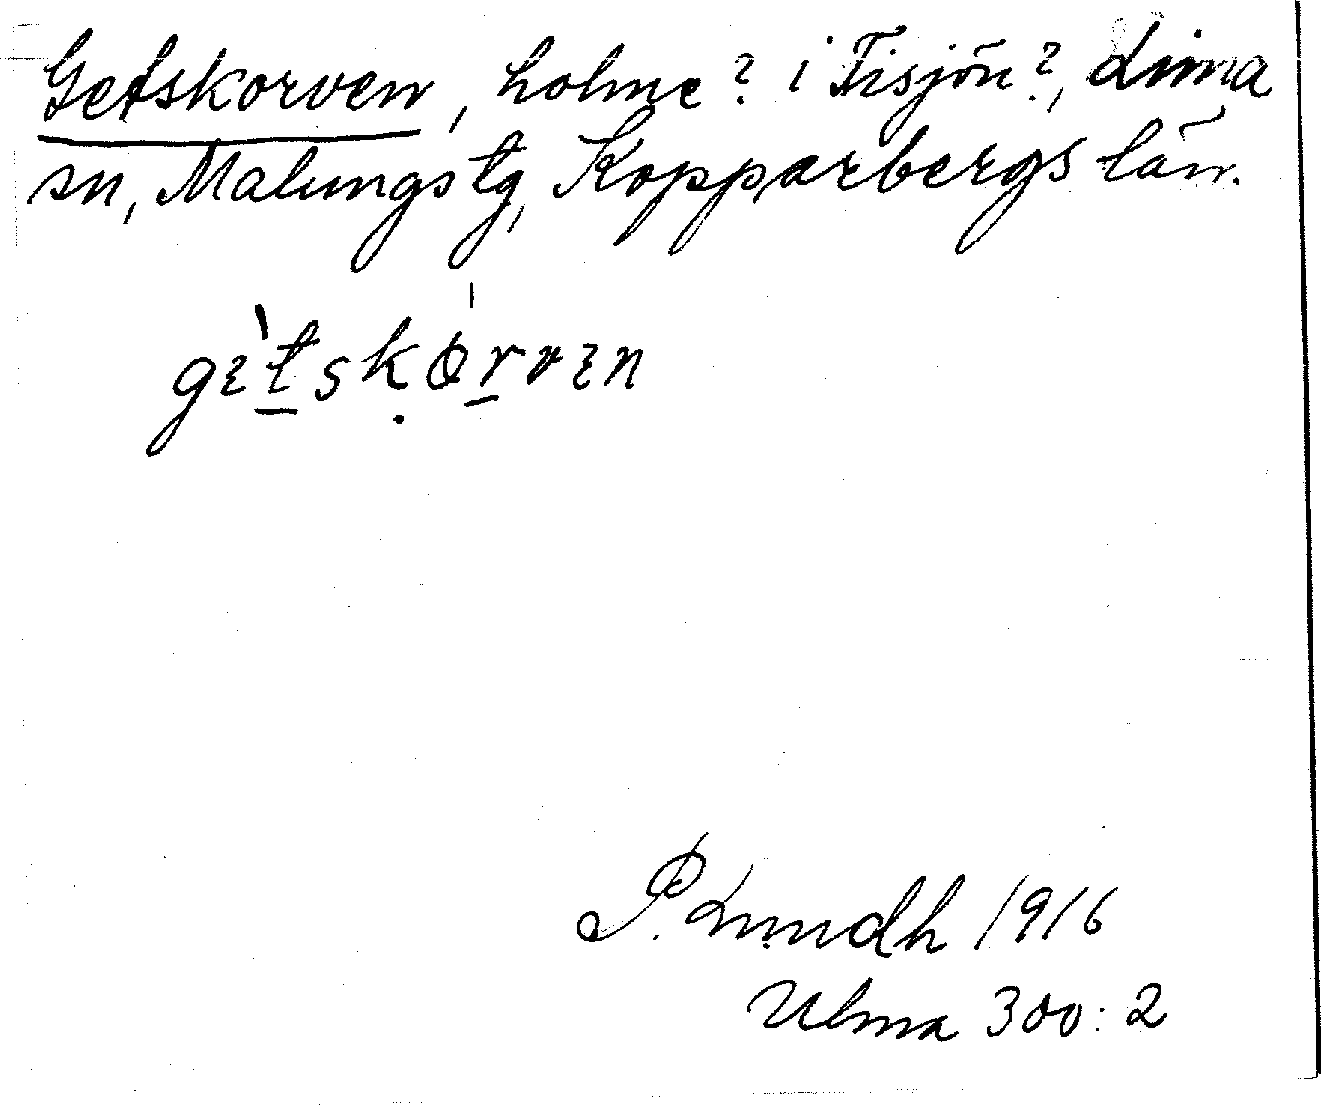 Getskorven, holme? i Tisjön?, Lima
sn, Malungs tg, Kopparbergs län.
gètskòrven
P. Lundh 1916
Ulma 300:2